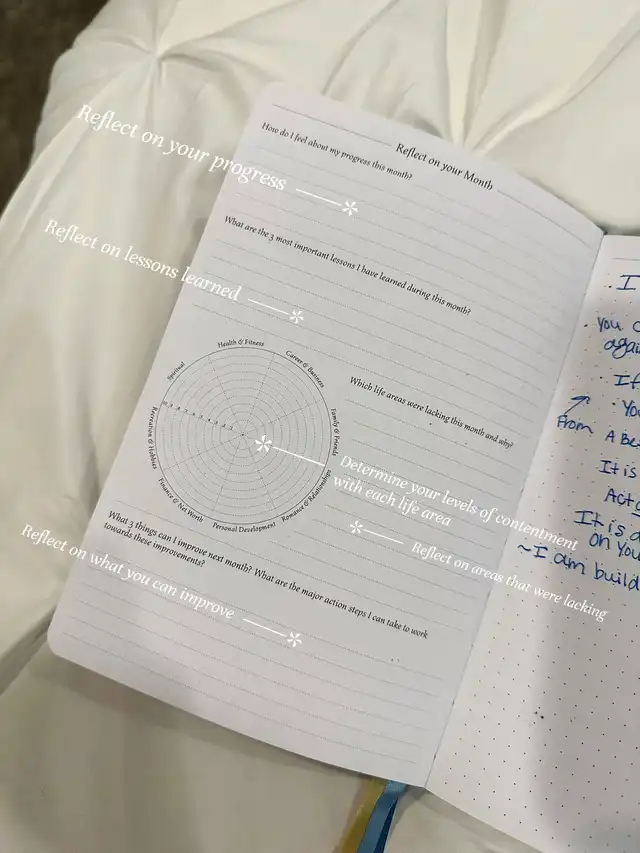 Reflect on your Month
How do I feel about my progress this month?
Reflect on your progress
What are the 3 most important lessons I have learned during this month?
Reflect on lessons learned
Health & Fitness
Career & Business
Family & Friends
Romance & Relationships
Personal Development
Finance & Net Worth
Recreation & Hobbies
Spiritual
10 9 8 7 6 5 4 3 2 1
Which life areas were lacking this month and why?
Determine your levels of contentment
with each life area
Reflect on areas that were lacking
What 3 things can I improve next month? What are the major action steps I can take to work
towards these improvements?
Reflect on what you can improve
I
you c
again
If
You
From A Be
It is
Act
It is a
on you
~I am build